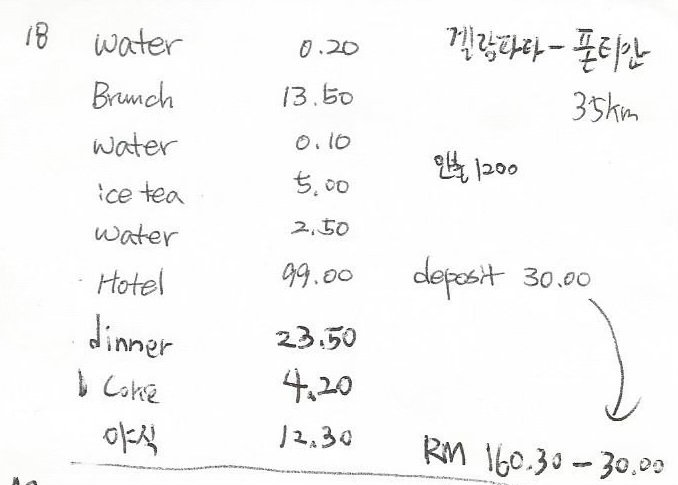 18 water 0.20 겔랑파타 - 폰티안
Brunch 13.50 35km
water 0.10
ice tea 5.00 환불 1200
water 2.50
Hotel 99.00 deposit 30.00
dinner 23.50
Coke 4.20
야식 12.30 RM 160.30 - 30.00